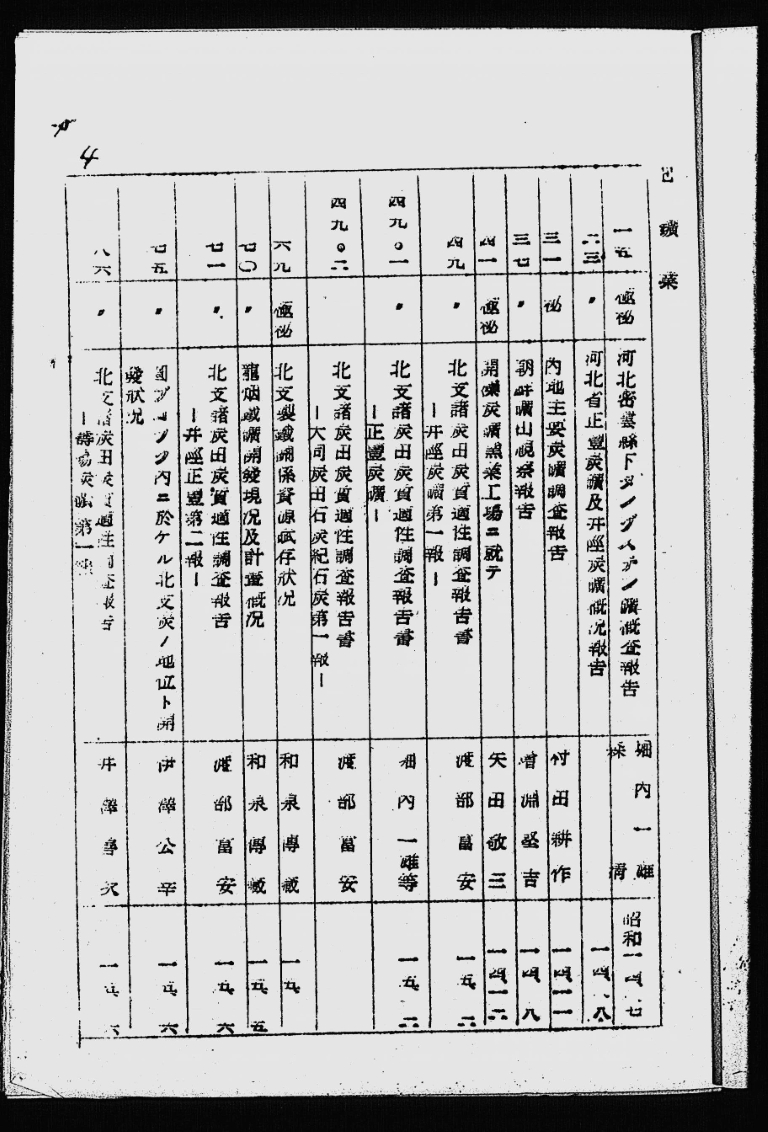 4
己 礦業
一五 極秘 河北密雲縣下タングステン礦概査報告 堀内一雄 清 昭和一四、七
二三 〃 河北省正豐炭礦及井陘炭礦概況報告 一四、八
三一 秘 內地主要炭礦調査報告 村田耕作 一四一一
三七 〃 朝鮮礦山視察報告 增淵堅吉 一四、八
四一 極秘 開灤炭礦窯業工場ニ就テ 矢田敬三 一四一二
四九 〃 北支諸炭田炭質適性調査報告書
―井陘炭礦第一報― 渡部富安 一五、二
四九。一 〃 北支諸炭田炭質適性調査報告書
―正豐炭礦― 堀内一雄等 一五、二
四九。二 北支諸炭田炭質適性調査報告書
―大同炭田石炭紀石炭第一報― 渡部富安
六九 極秘 北支製鐵關係資源賦存狀況 和泉傳藏 一五
七〇 〃 龍烟鐵礦開發現況及計畫概況 和泉傳藏 一五、五
七一 〃 北支諸炭田炭質適性調査報告
―井陘正豐第二報― 渡部富安 一五、六
七五 〃 圓ブロック內ニ於ケル北支炭ノ地位ト開
發狀況 伊澤公 一五、六
八六 〃 北支諸炭田炭質適性調査報告
第一 井澤 一五、六